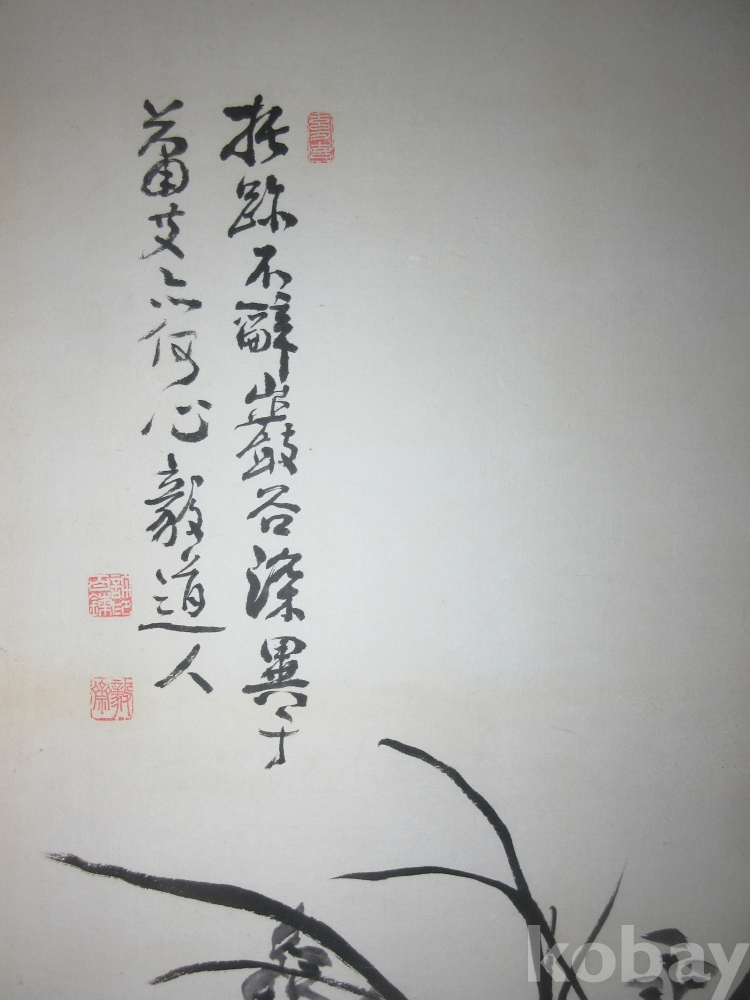 托跡不辭巖谷深異于
蕭艾亦何心毅道人
毅齋
kobay